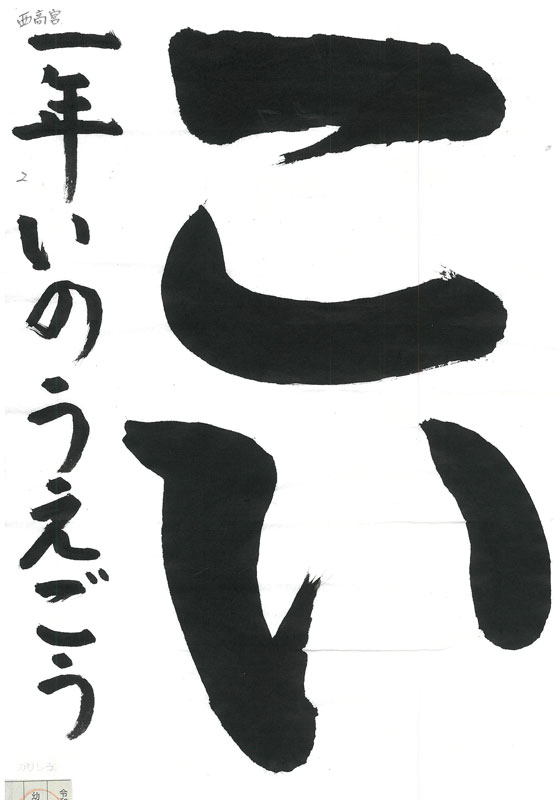 こい
西高宮
一年いのうえごう
2
令
幼